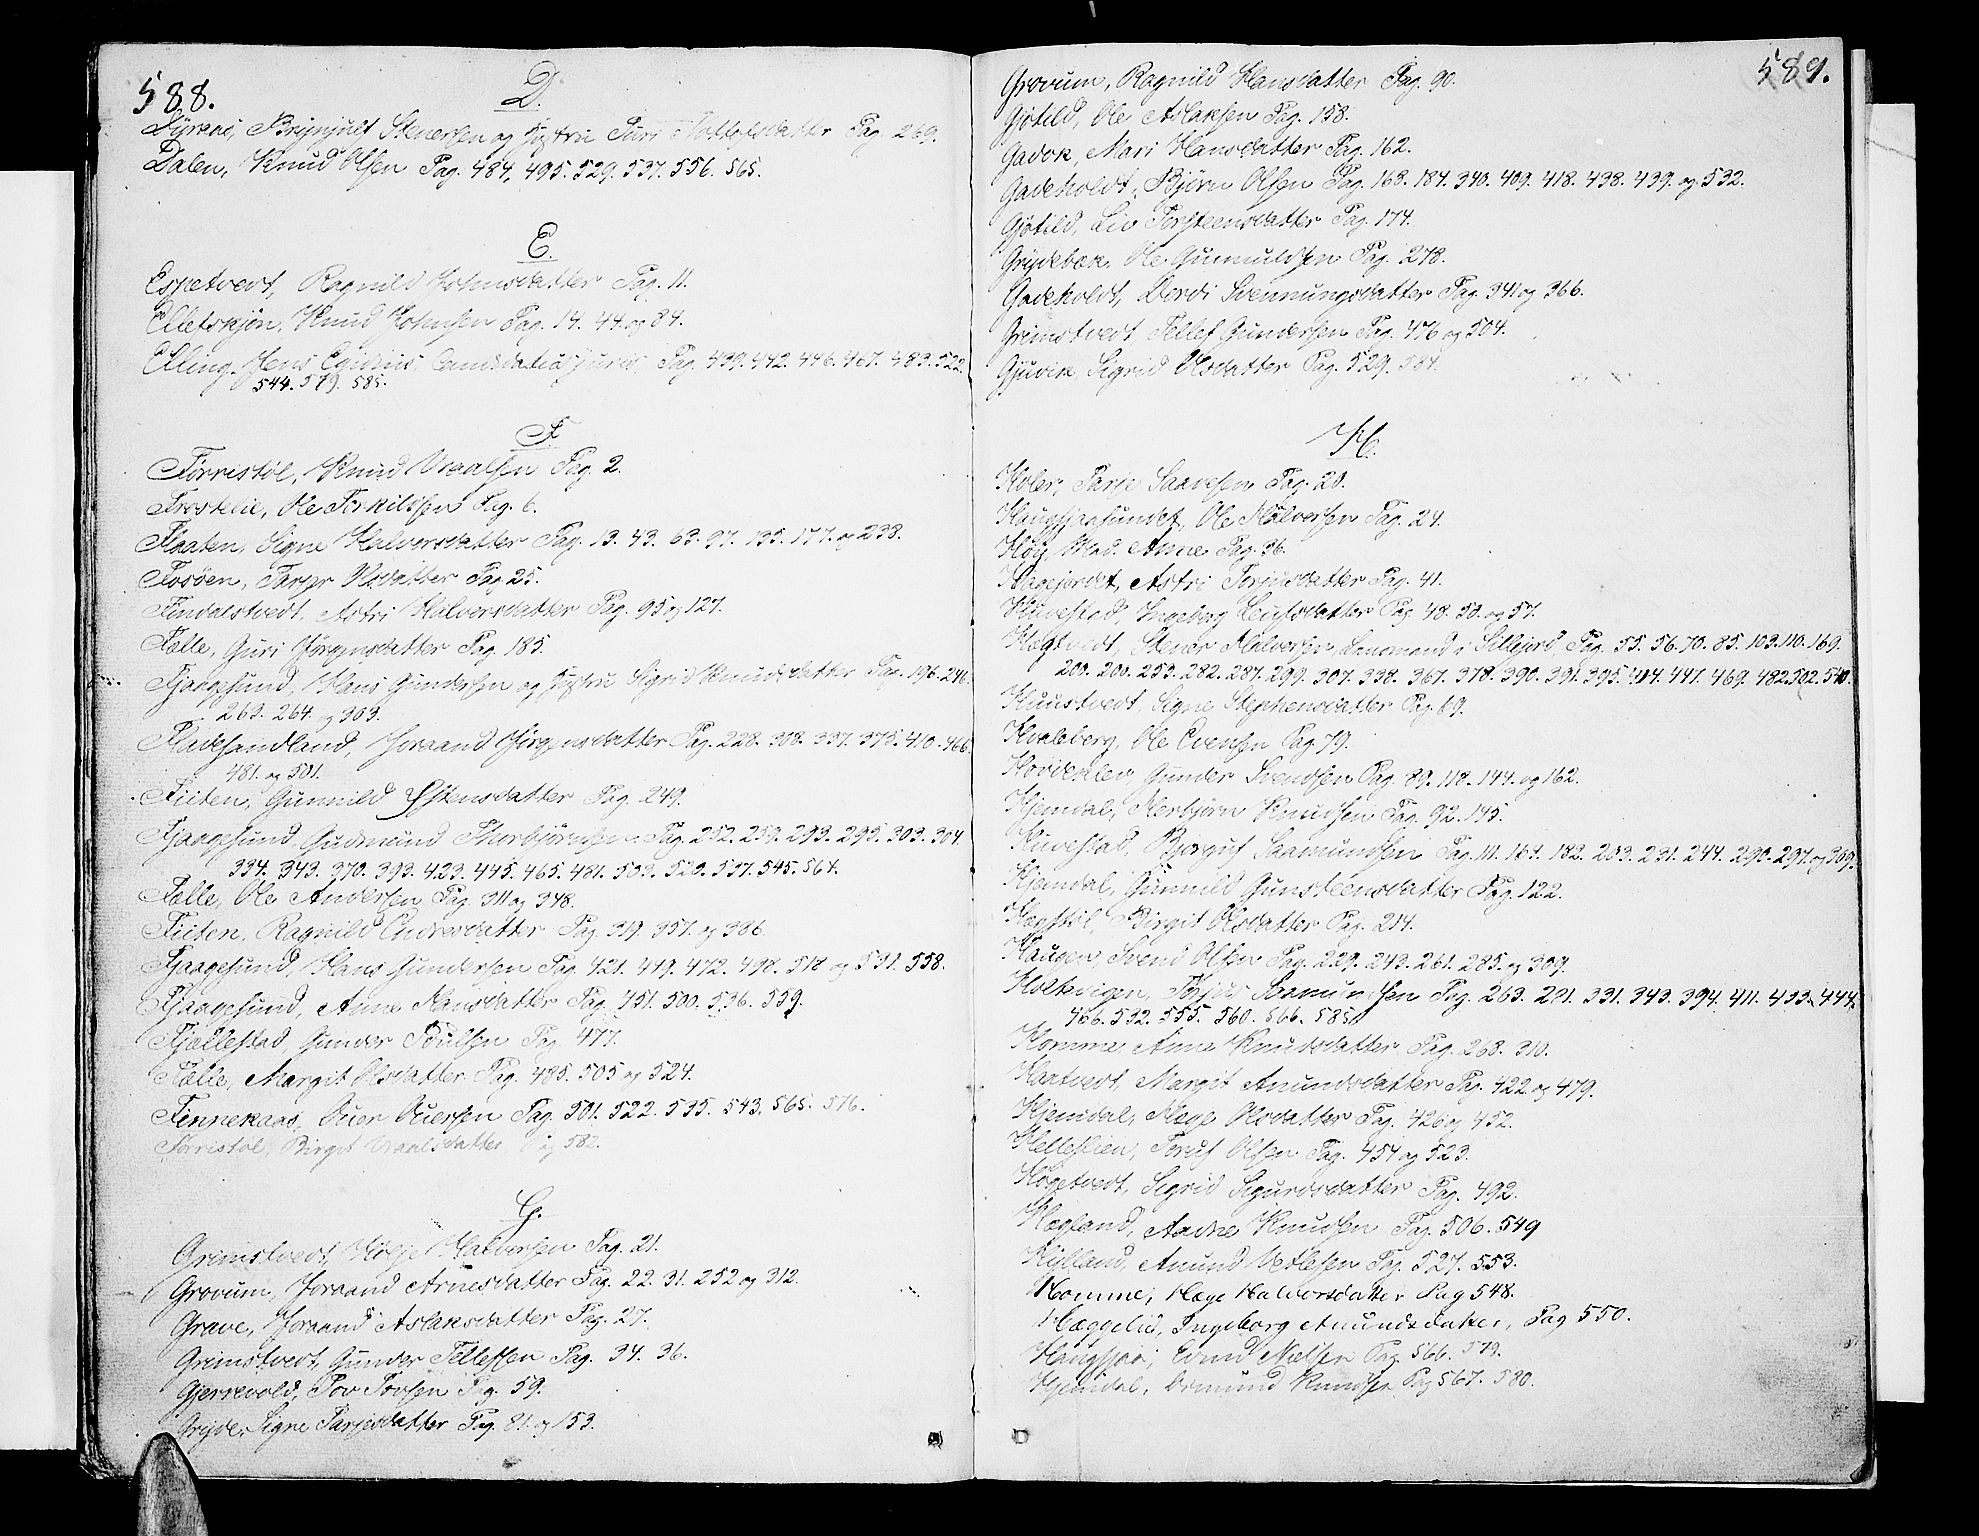 588.
D.
Dyraas, Brynjulf Stenersen og Hustru Turi Pag. 269.
Dalen, Knud Olsen Pag. 484, 495. 529. 537. 556. 565.
E.
Espetvedt, Ragnild Johnsdatter Pag. 11.
Elletskjön, Knud Johnsen Pag. 14. 44. og 84.
Elling. Jens Egidius, Candidatus juris, Pag. 439. 442. 446. 467. 483. 522.
544. 579. 585.
F.
Förristöl, Knud Vraalsen Pag. 2.
Frostelie, Ole Torkildsen Pag. 6.
Flaaten, Signe Halvorsdatter Pag. 13. 43. 63. 97. 135. 177. og 238.
Fosöen, Olsdatter Pag 25.
Findalstvedt, Astri Halvorsdatter Pag. 95 og 127.
Fælle, Guri Jörgensdatter Pag. 185.
Fjaagesund, Hans Gundersen og Hustru Sigrid Knudsdatter Pag. 196. 246.
263. 264. og 303.
Fladesandland, Joraand Jörgensdatter Pag. 228. 308. 337. 375. 410. 466.
481. og 501.
Fiiten, Gunnild Östensdatter Pag. 249.
Fjaagesund, Gudmund Thorbjörnsen Pag. 252. 259. 293. 295. 303. 304.
334. 343. 370. 393. 423. 445. 465. 481. 503. 520. 537. 545. 564.
Fælle, Ole Andersen Pag. 311 og 348.
Fiiten, Ragnild Endresdatter Pag. 319. 357. og 386.
Fjaagesund, Hans Gundersen Pag. 421. 449. 472. 498. 518 og 531. 558.
Fjaagesund, Anne Hansdatter Pag. 451. 500. 536. 559.
Fjællestad, Gunder Pag. 477.
Fælle, Margit Olsdatter Pag. 485. 505 og 524.
Finnekaas, Ouer Ouersen Pag. 501. 522. 535. 543. 565. 576.
Förristöl, Birgit Vraalsdatter, Pag 582.
G.
Grimstvedt, Kittil Halvorsen Pag. 21.
Grovum, Joraand Arnesdatter Pag. 22. 31. 252 og 312.
Grave, Joraand Aslaksdatter Pag. 27.
Grimstvedt, Gunder Tellefsen Pag. 34. 36.
Gjersvold, Tov Tovsen Pag. 59.
Gryde, Signe Tarjesdatter Pag. 81. og 153.
589.
Grovum, Ragnild Hansdatter Pag. 90.
Gjötild, Ole Aslaksen Pag. 158.
Gavok, Mari Hansdatter Pag. 162.
Gadeholdt, Björn Olsen Pag. 168. 184. 340. 409. 418. 438. 439. og 532.
Gjötild, Liv Torsteensdatter Pag. 174.
Grydebæk, Ole Gunnuldsen Pag. 278.
Gadeholdt, Dordi Svennungsdatter Pag. 341 og 366.
Grimstvedt, Tellef Gundersen Pag. 476 og 504.
Gjuvik, Sigrid Olsdatter Pag. 529. 584.
H.
Tarje Saavesen Pag. 20.
Haugsjaasundet, Ole Halvorsen Pag. 24.
Höy, Mad. Anne Pag. 36.
Hagejordet, Astri Torjusdatter Pag. 41.
Huvestad, Ingeborg Leufsdatter Pag. 48. 50. og 57.
Hægtvedt, Stener Halvorsen, Lensmand i Sillejord Pag. 55. 56. 70. 85. 103. 110. 169.
200. 200. 253. 282. 287. 299. 307. 338. 367. 378. 390. 391. 395. 414. 447. 469. 482. 502. 540.
Signe Stephensdatter Pag. 69.
Hvaleberg, Ole Evensen Pag. 79.
Hovdenden Gunder Svendsen Pag. 89. 118. 144. og 162.
Hjemdal, Herbjörn Knudsen Pag. 92. 145.
Huvestad, Bjorguf Saamundsen Pag. 111. 161. 182. 203. 231. 244. 290. 297. og 309.
Hjemdal, Gunnild Gunsteensdatter Pag. 122.
Hægstöl, Birgit Olsdatter Pag. 214.
Haugen, Svend Olsen Pag. 229. 243. 261. 285. og 309.
Holtevigen, Torjus Saamundsen Pag. 263. 291. 331. 343. 394. 411. 433. 444.
466. 532. 555. 560. 566. 585.
Homme, Anne Knudsdatter Pag. 268. 310.
Haatvedt, Margit Anundsdatter Pag. 422 og 479.
Hjemdal, Hæge Olsdatter Pag. 426 og 452.
Helleslien, Olsen Pag. 454 og 523.
Högetvedt, Sigrid Sigurdsdatter Pag. 492.
Hægland, Aadne Knudsen Pag. 506. 549
Hylland, Anund Vetlesen Pag. 527. 553.
Homme, Hæge Halvorsdatter Pag 548.
Hæggelid, Ingeborg Amundsdatter, Pag 550.
Haugsjaa, Nielsen Pag 566. 579.
Hjemdal, Knudsen Pag 567. 580.